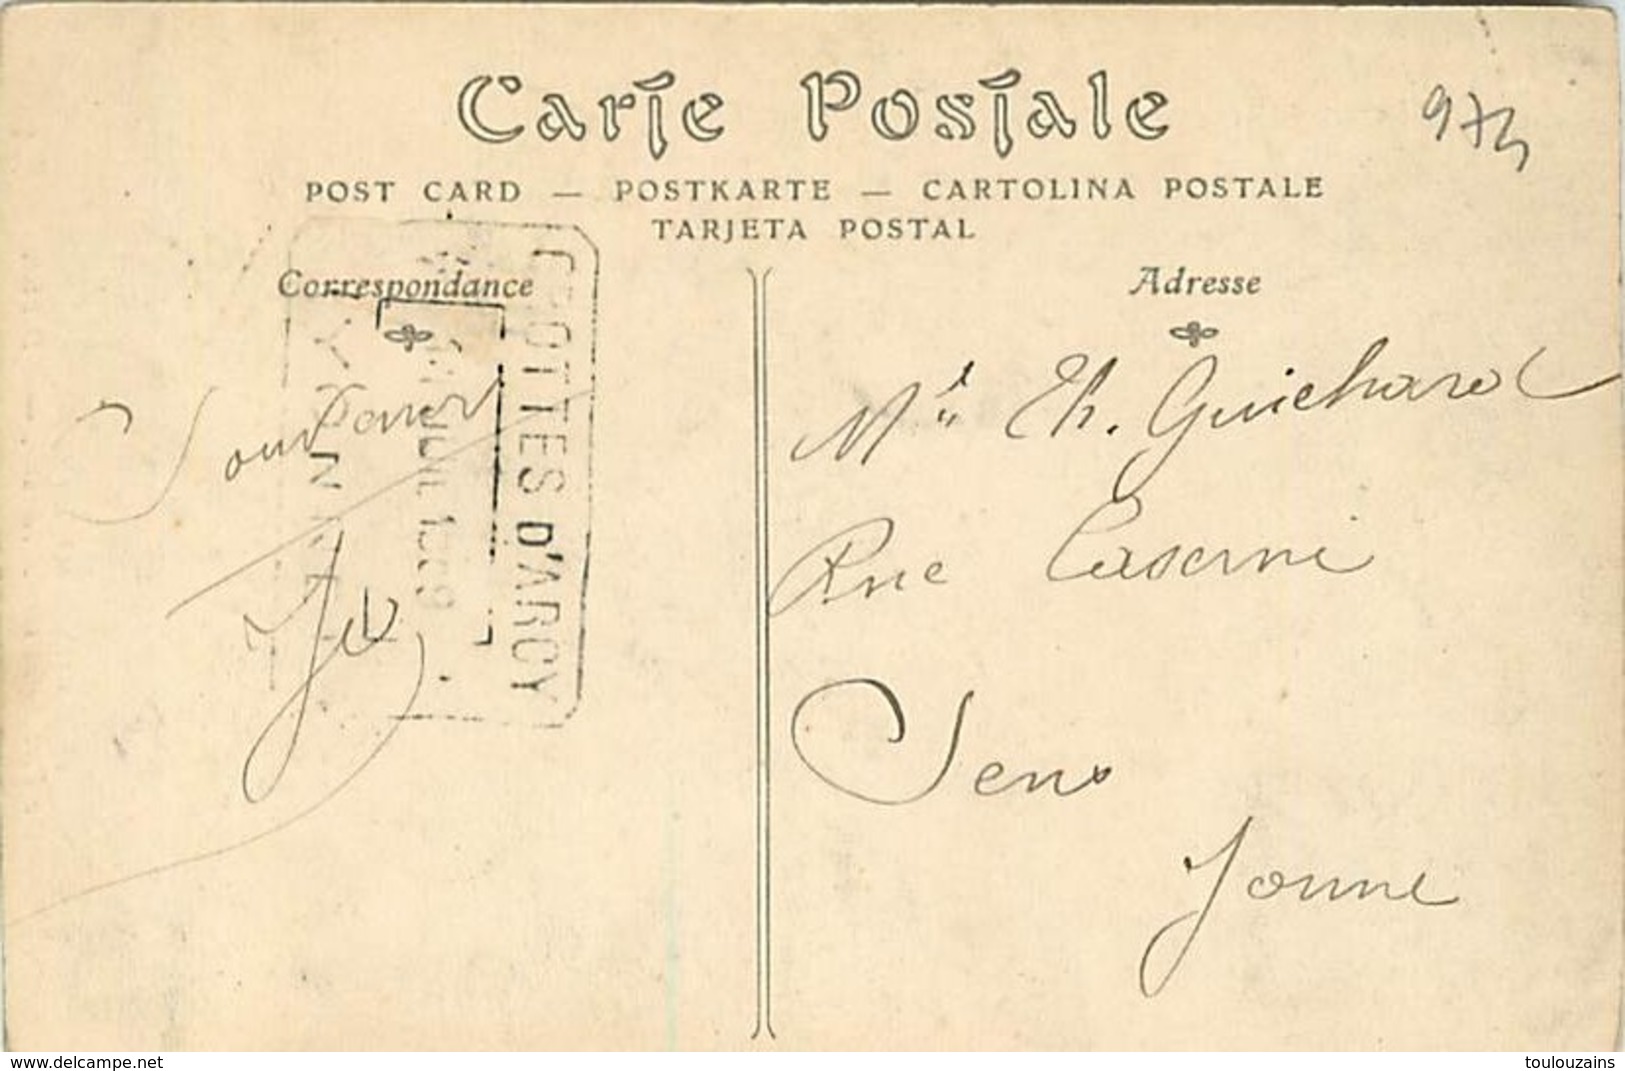 Carte Postale
POST CARD — POSTKARTE — CARTOLINA POSTALE
TARJETA POSTAL
Correspondance
Adresse
GROTTES D'ARCY
YONNE
Souvenir
Mlle Th. Guichard
Rue Caserne
Sens
Yonne
www.delcampe.net
toulouzains